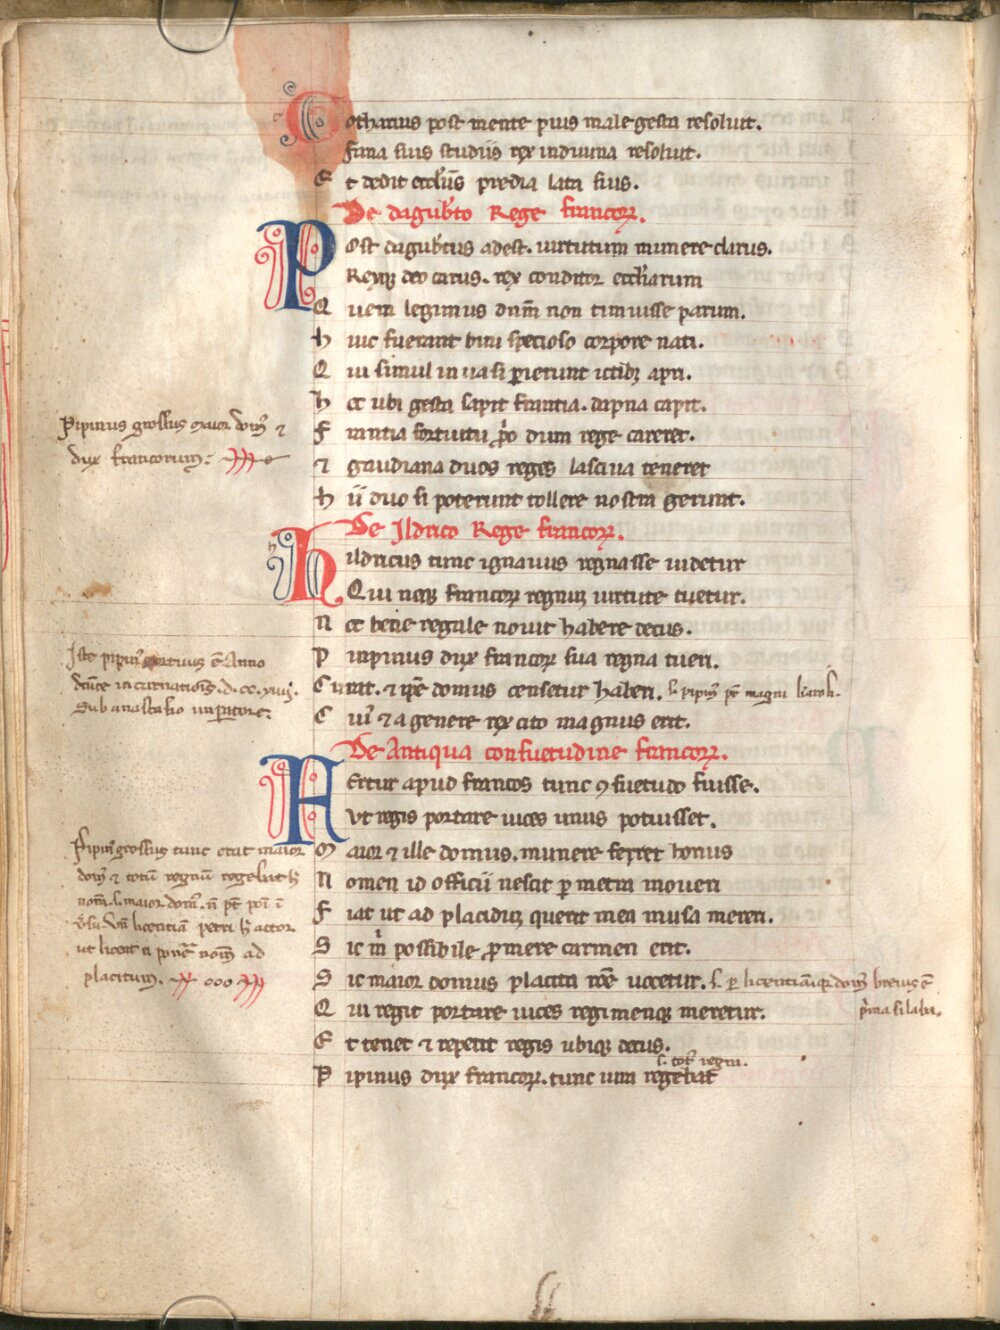 Clotharius post mente pius male gesta resoluit.
Fana suis studiis rex indiuina resoluit.
Et dedit eccl'iis predia lata suis.
De dagub'to Rege francoꝝ.
Post dagub'tus adest. uirtutum munere clarus.
Rexqꝫ deo carus. rex conditor eccl'iarum
Quem legimus dn̄m non timuisse parum.
huic fuerant bini specioso corpore nati.
Qui simul inuasi perierunt ictibꝫ apri.
hec ubi gesta sapit francia. dapna capit.
Francia fortuitu dum rege careret.
⁊ gaudiana duos reges lasciua teneret
hii duo si poterunt tollere nostra gerunt.
De Ildrico Rege francoꝝ.
hildricus tunc ignauus regnasse uidetur
Qui neqꝫ francoꝝ regnum uirtute tuetur.
Nec bene regale nouit habere decus.
Pipinus dux francoꝝ sua regna tueri.
Curat. ⁊ ip̄e domus censetur haberi. s. pipin' pr̄ magni karoli.
Cui' ⁊ a genere rex cito magnus erit.
De Antiqua consuetudine francoꝝ.
Fertur apud francos tunc ꝯsuetudo fuisse.
Vt regis portare uices unus potuisset.
Maior ⁊ ille domus. munere ferret honus
Nomen id officii nescit ꝑ metra moueri
Fiat ut ad placidum querit mea musa mereri.
Sic m̄ possibile ꝓmere carmen erit.
Sic maior domus placita uocetur. s. ꝑ licentiam domus breuis ē
prima silaba.
Qui regit portare uices regimenqꝫ meretur.
Et tenet ⁊ repetit regis ubiqꝫ decus.
s. toti' regni.
Pipinus dux francoꝝ. tunc regebat
Pipinus grossus maior dom' ⁊
dux francorum.
Iste pipin' ē Anno
incarnatiōis d. cc.
Sub anastasio
Pipin' grossus tunc erat maior
dom' ⁊ totū regnū regebat h
nom̄ s. maior dom' n̄ pōt poni ī
v̄su. vn̄ licentiā petit h actor
ut liceat ei ponere nom̄ ad
placitum.